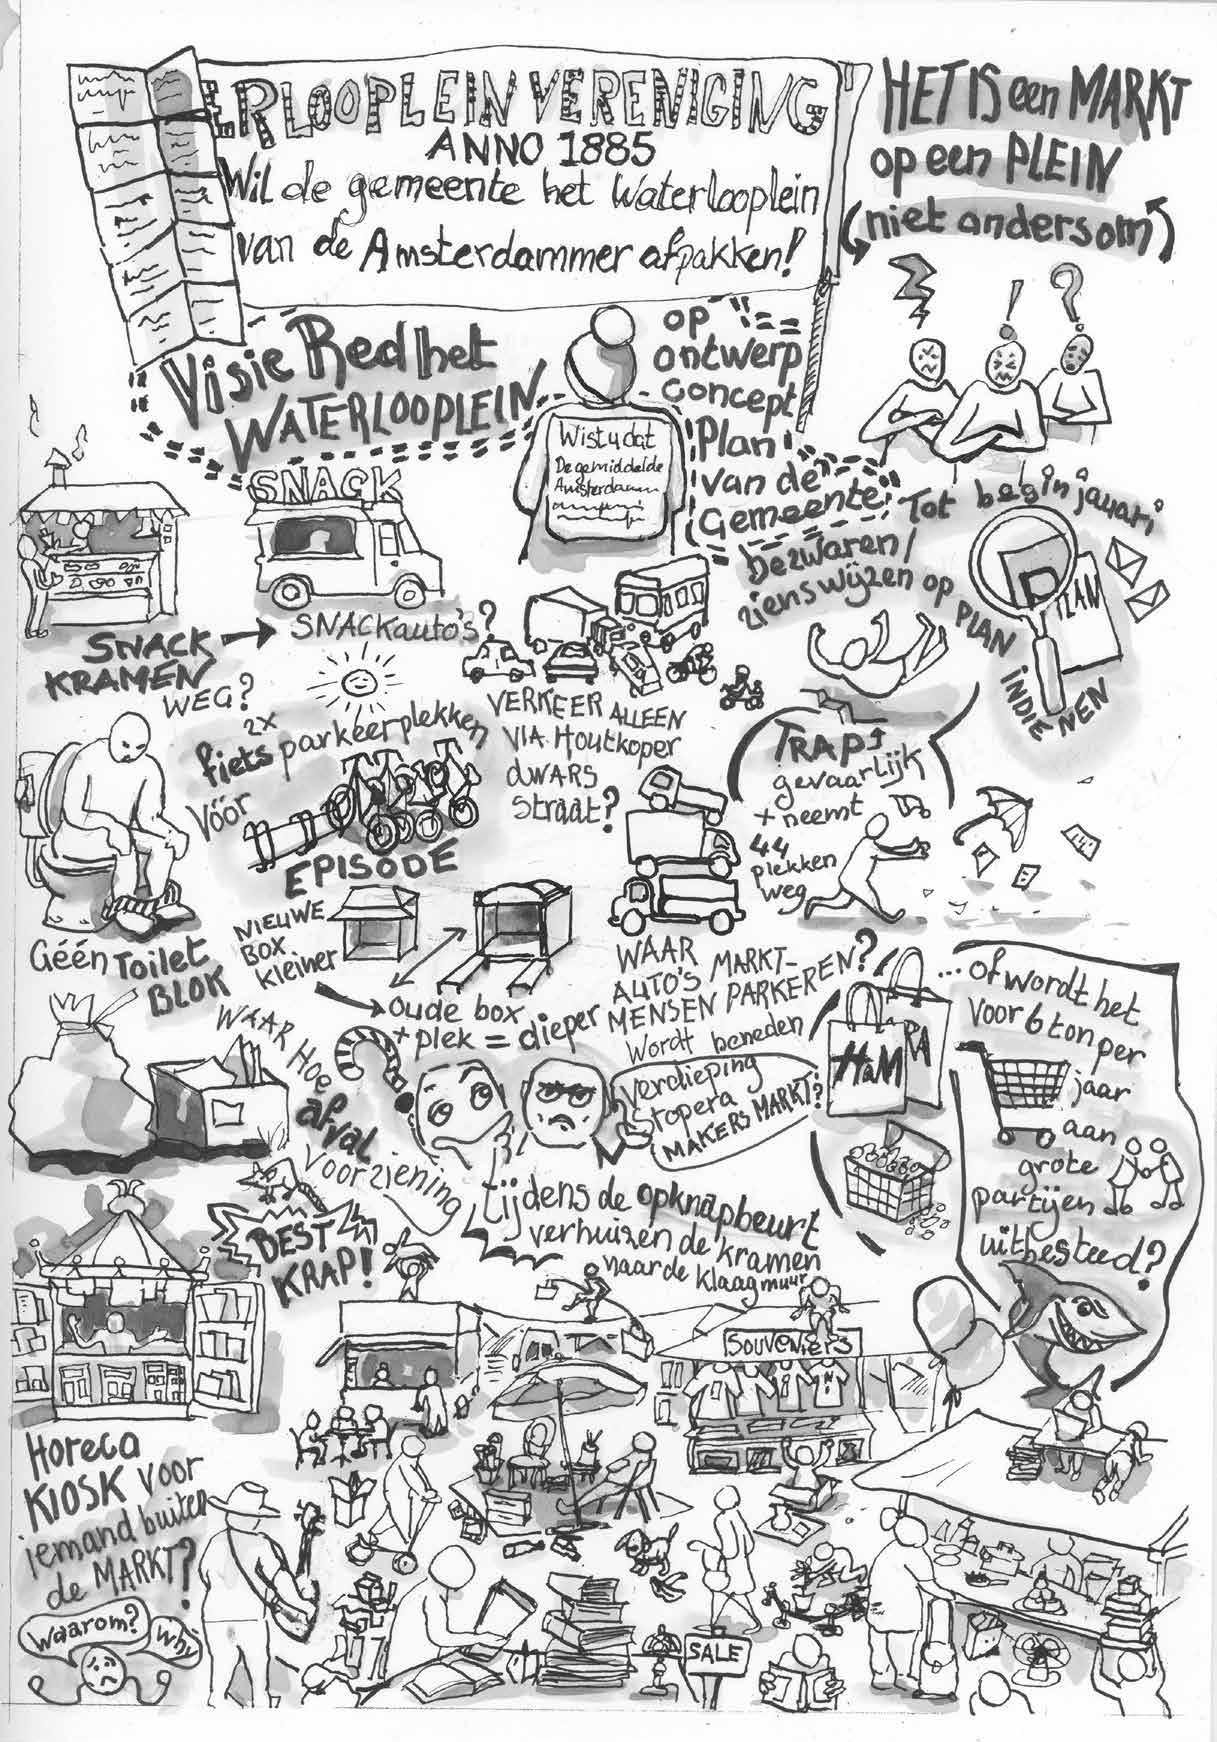 ERLOOPLEIN VERENIGING
ANNO 1885
Wil de gemeente het Waterlooplein
van de Amsterdammer afpakken!
HET IS een MARKT
op een PLEIN
(niet andersom)
Visie Red het
WATERLOOPLEIN
op
ontwerp
concept
Plan
van de
Gemeente
Wist u dat
De gemiddelde
Amsterdam
Tot begin januari
Bezwaren/
zienswijzen op PLAN
INDIENEN
PLAN
SNACK
SNACK
KRAMEN
WEG?
SNACKauto's?
2x
fiets parkeerplekken
vóór
EPISODE
VERKEER ALLEEN
VIA Houtkoper
dWARS
straat?
TRAP
gevaarlijk
+ neemt
44
plekken
weg
Géén Toilet
BLOK
NIEUWE
BOX
kleiner
oude box
+ plek = dieper
WAAR
AUTO'S MARKT-
MENSEN PARKEREN?
Wordt beneden
verdieping
Stopera
MAKERS MARKT?
H&M
RA
... of wordt het
voor 6 ton per
jaar
aan
grote
partijen
uitbesteed?
WAAR Hoe
afval
voorziening
BEST
KRAP!
tijdens de opknapbeurt
verhuizen de kramen
naar de klaagmuur
SOUVENIERS
Horeca
KIOSK voor
iemand buiten
de MARKT?
Waarom?
Why
SALE